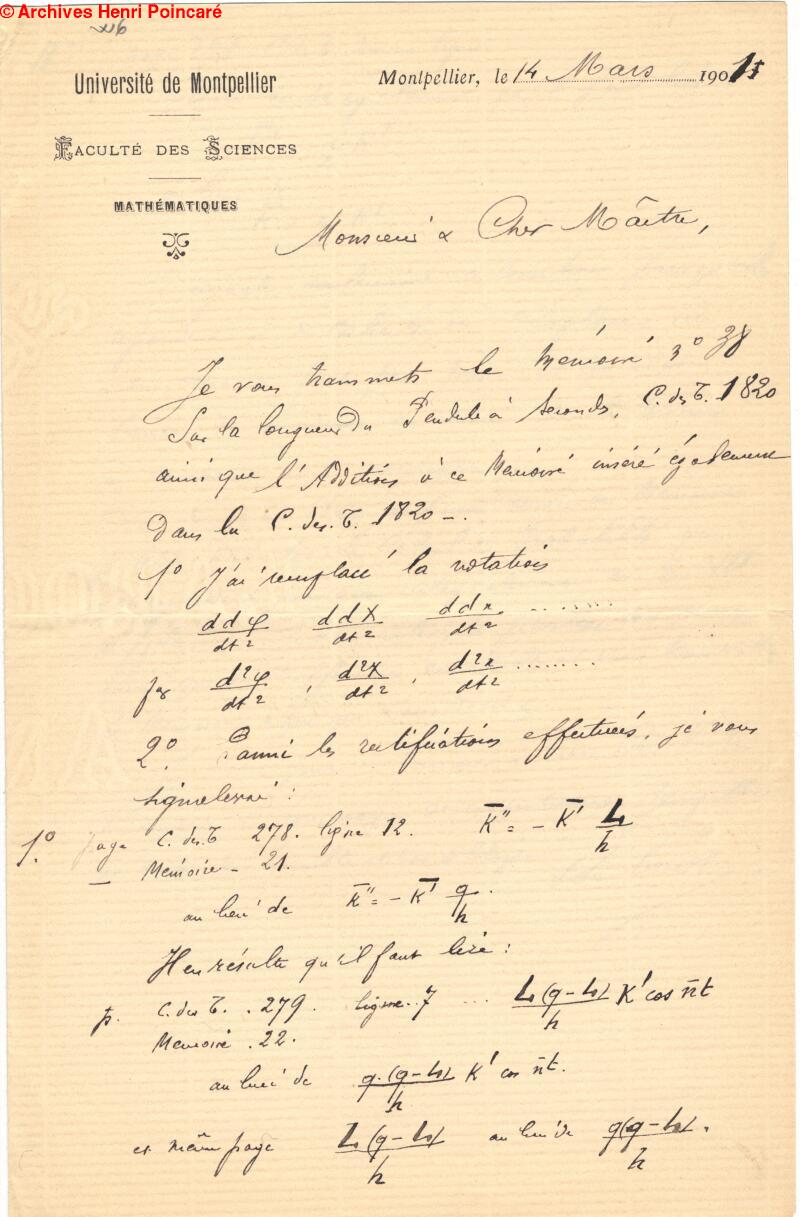 © Archives Henri Poincaré
Université de Montpellier
Montpellier, le 14 Mars 1901
FACULTÉ DES SCIENCES
MATHÉMATIQUES
Monsieur & Cher Maître,
Je vous transmets le Mémoire n° 38
Sur la longueur du Pendule à Secondes, C. des T. 1820
ainsi que l'Addition à ce Mémoire inséré également
dans la C. des. T. 1820 -.
1° J'ai remplacé la notation
ddφ/dt² ddX/dt² ddx/dt² .......
par d²φ/dt², d²X/dt², d²x/dt² .......
2° Parmi les rectifications effectuées, je vous
signalerai :
1° page C. des. T 278. ligne 12. K'' = - K' L/h
Mémoire - 21.
au lieu de K'' = - K' g/h.
Il en résulte qu'il faut lire :
p. C. des T. . 279. ligne. 7 ... L(g-L)/h K' cos nt
Mémoire . 22.
au lieu de g.(g-L)/h K' cos nt.
et même page L(g-L)/h au lieu de g(g-L)/h.